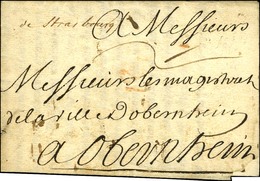 de Strasbourg
A Messieurs
Messieurs les magistrats
de la ville Dobernheim
a Obernheim